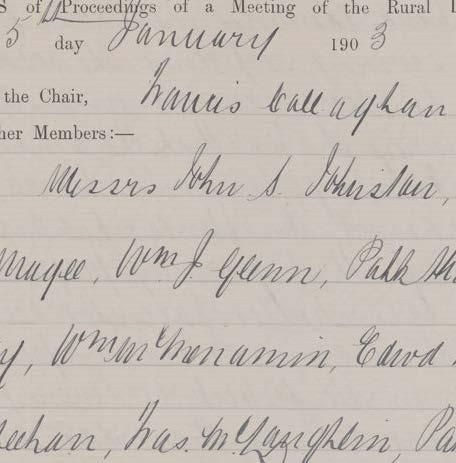 S of Proceedings of a Meeting of the Rural
5 day January 1903
the Chair, Francis Callaghan
her Members:—
Messrs John S. Johnston,
Magee, Wm J Glenn, Patk
y, Wm McMenamin, Edwd
eehan, Fras. McLaughlin, Pa